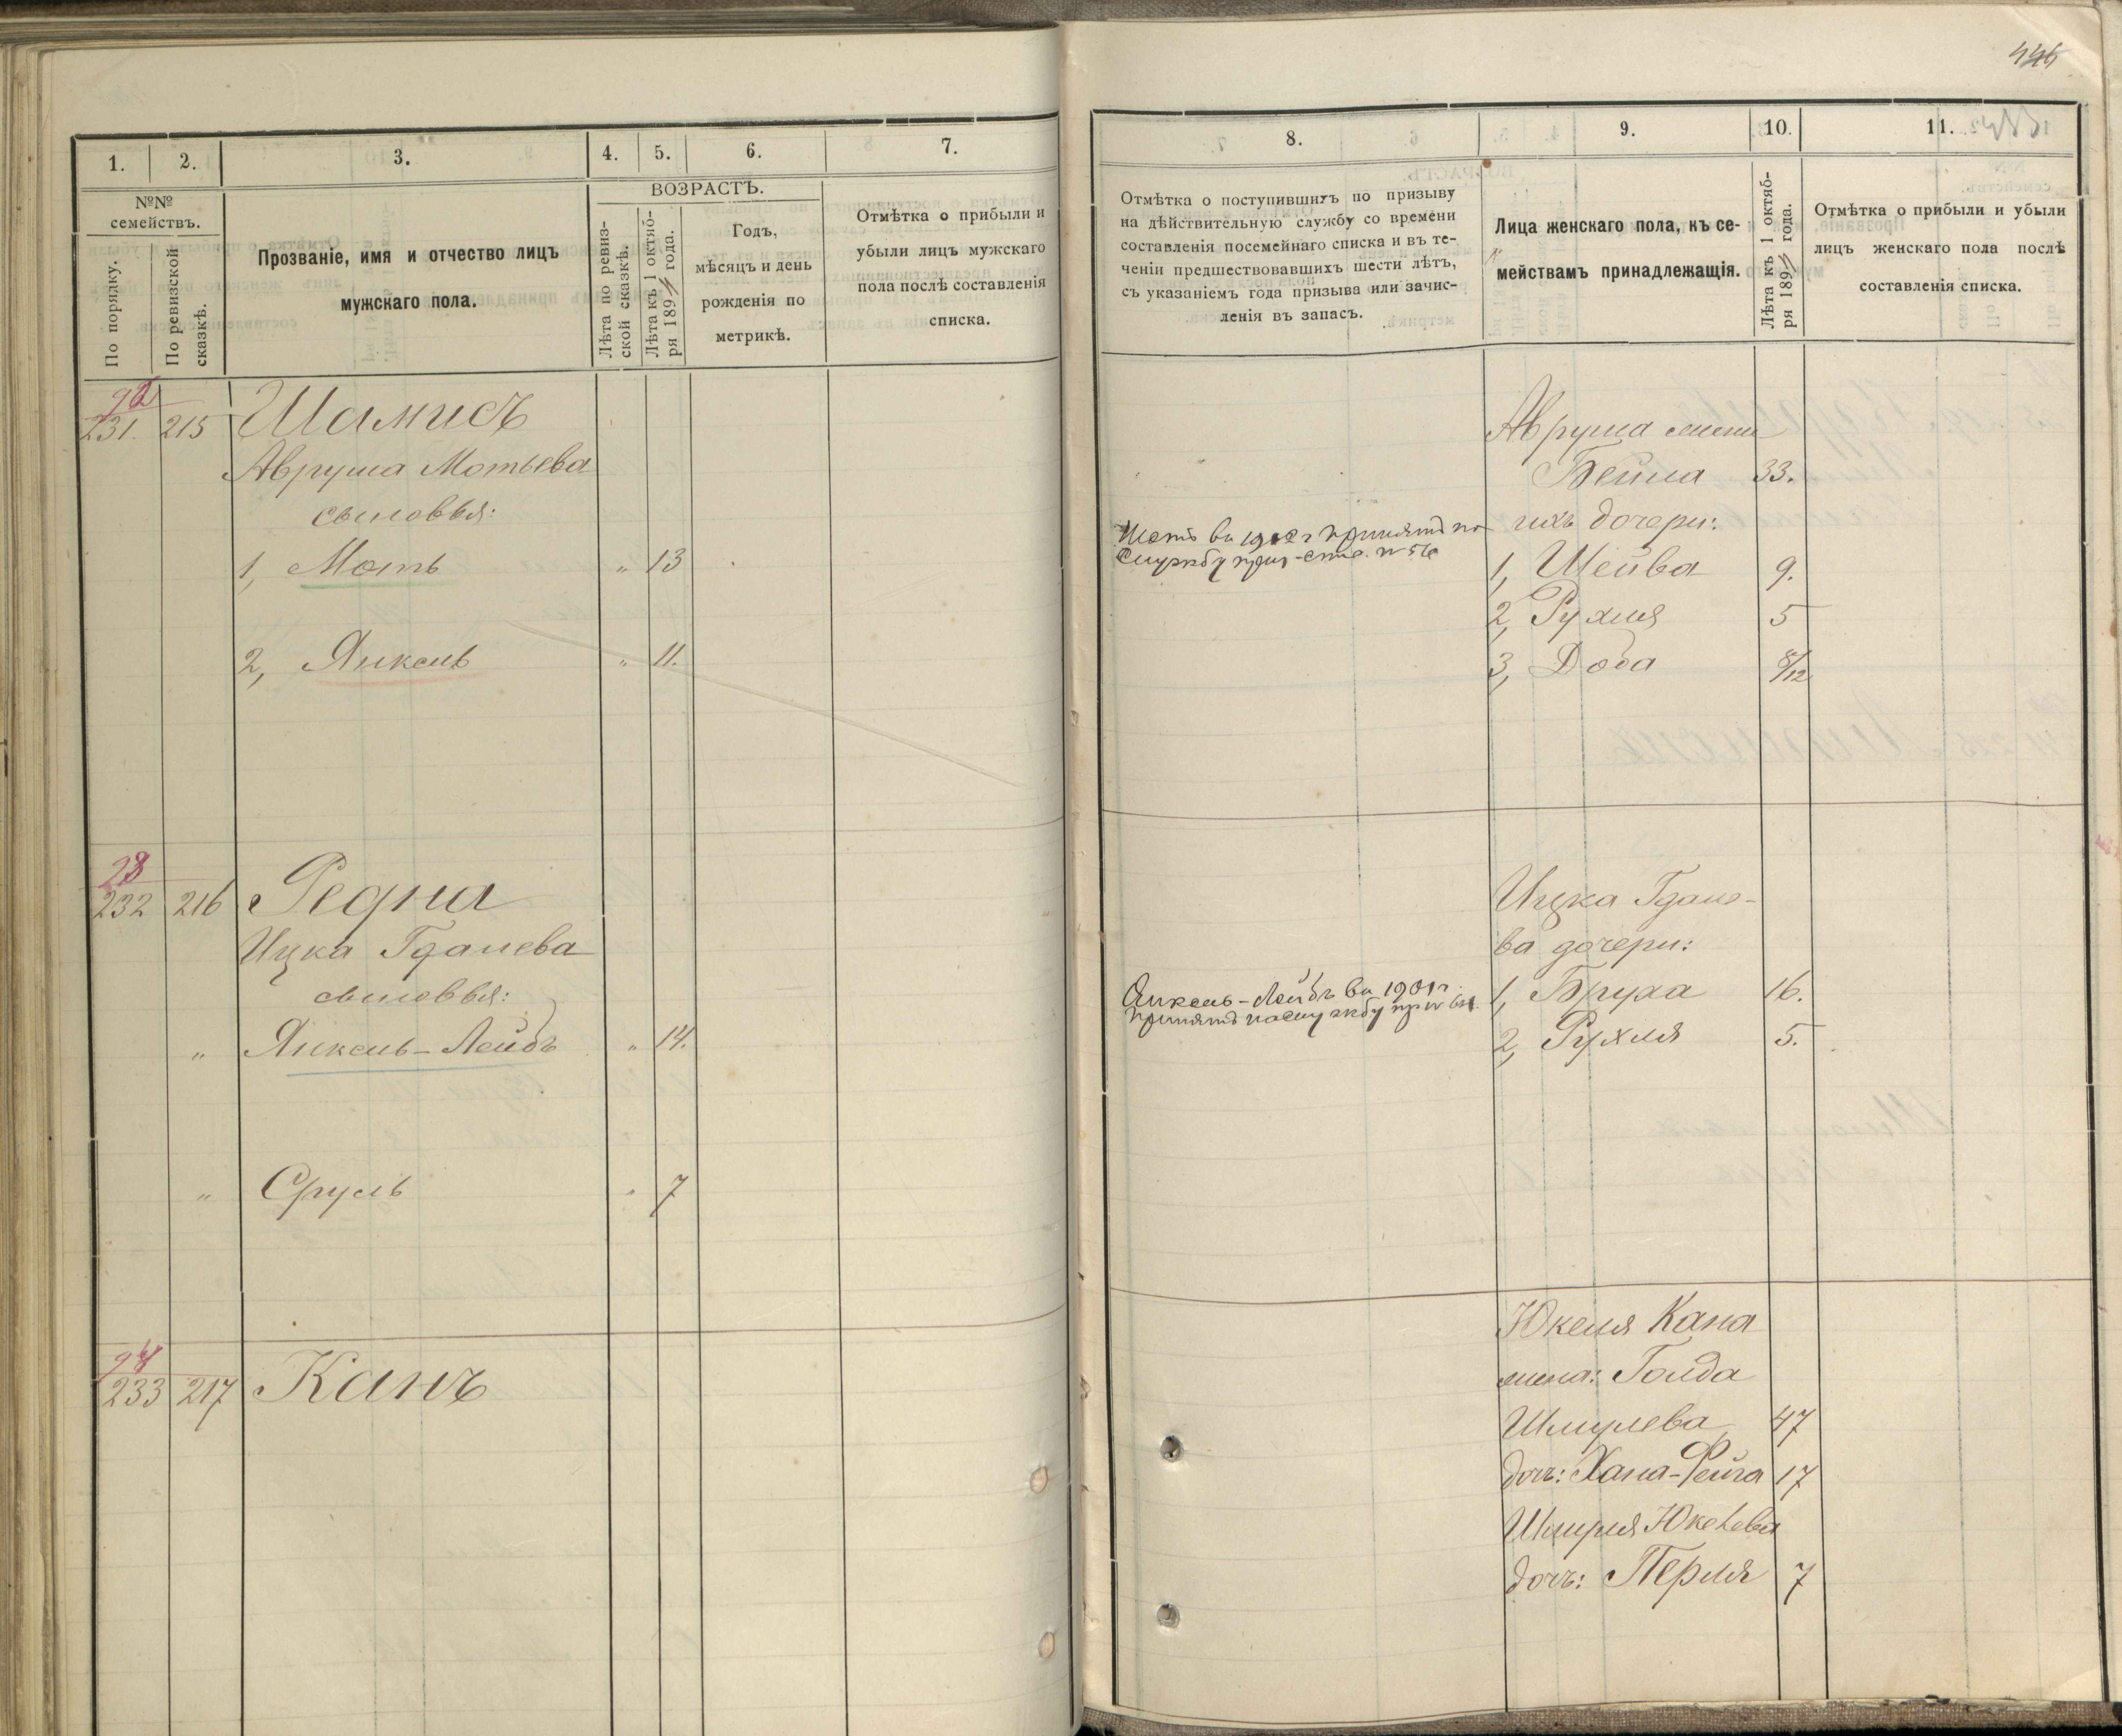 446
1.
2.
3.
4.
5.
6.
7.
№№
семействъ.
По порядку.
По ревизской
сказкѣ.
Прозваніе, имя и отчество лицъ
мужскаго пола.
ВОЗРАСТЪ.
Лѣта по ревиз-
ской сказкѣ.
Лѣта къ 1 октяб-
ря 189 года.
Годъ,
мѣсяцъ и день
рожденія по
метрикѣ.
Отмѣтка о прибыли и
убыли лицъ мужскаго
пола послѣ составленія
списка.
231. 215 Шамисъ
Авруша Мотьева
сыновья:
1, Моть " 13
2, Янкель " 11.
232 216 Редна
Ицка Гданева
сыновья:
" Янкель-Лейбъ " 14.
" Сруль " 7
233 217 Канъ
8.
9.
10.
11.
Отмѣтка о поступившихъ по призыву
на дѣйствительную службу со времени
составленія посемейнаго списка и въ те-
ченіи предшествовавшихъ шести лѣтъ,
съ указаніемъ года призыва или зачис-
ленія въ запасъ.
Лица женскаго пола, къ се-
мействамъ принадлежащія.
Лѣта къ 1 октяб-
ря 189 года.
Отмѣтка о прибыли и убыли
лицъ женскаго пола послѣ
составленія списка.
Авруша жена
Бейла 33.
ихъ дочери:
Моть въ 1902 г принятъ на
службу
1, Шейва 9.
2, Рухля 5
3, Доба 8/12
Ицка Гдане-
ва дочери:
Янкель-Лейбъ въ 1901 г.
принятъ на службу
1, Бруха 16.
2, Рухля 5.
Юкеля Кана
жена: Голда
Шмулева 47
дочь: Хана-Фейга 17
Шмуля Юкелева
дочь: Перля 7